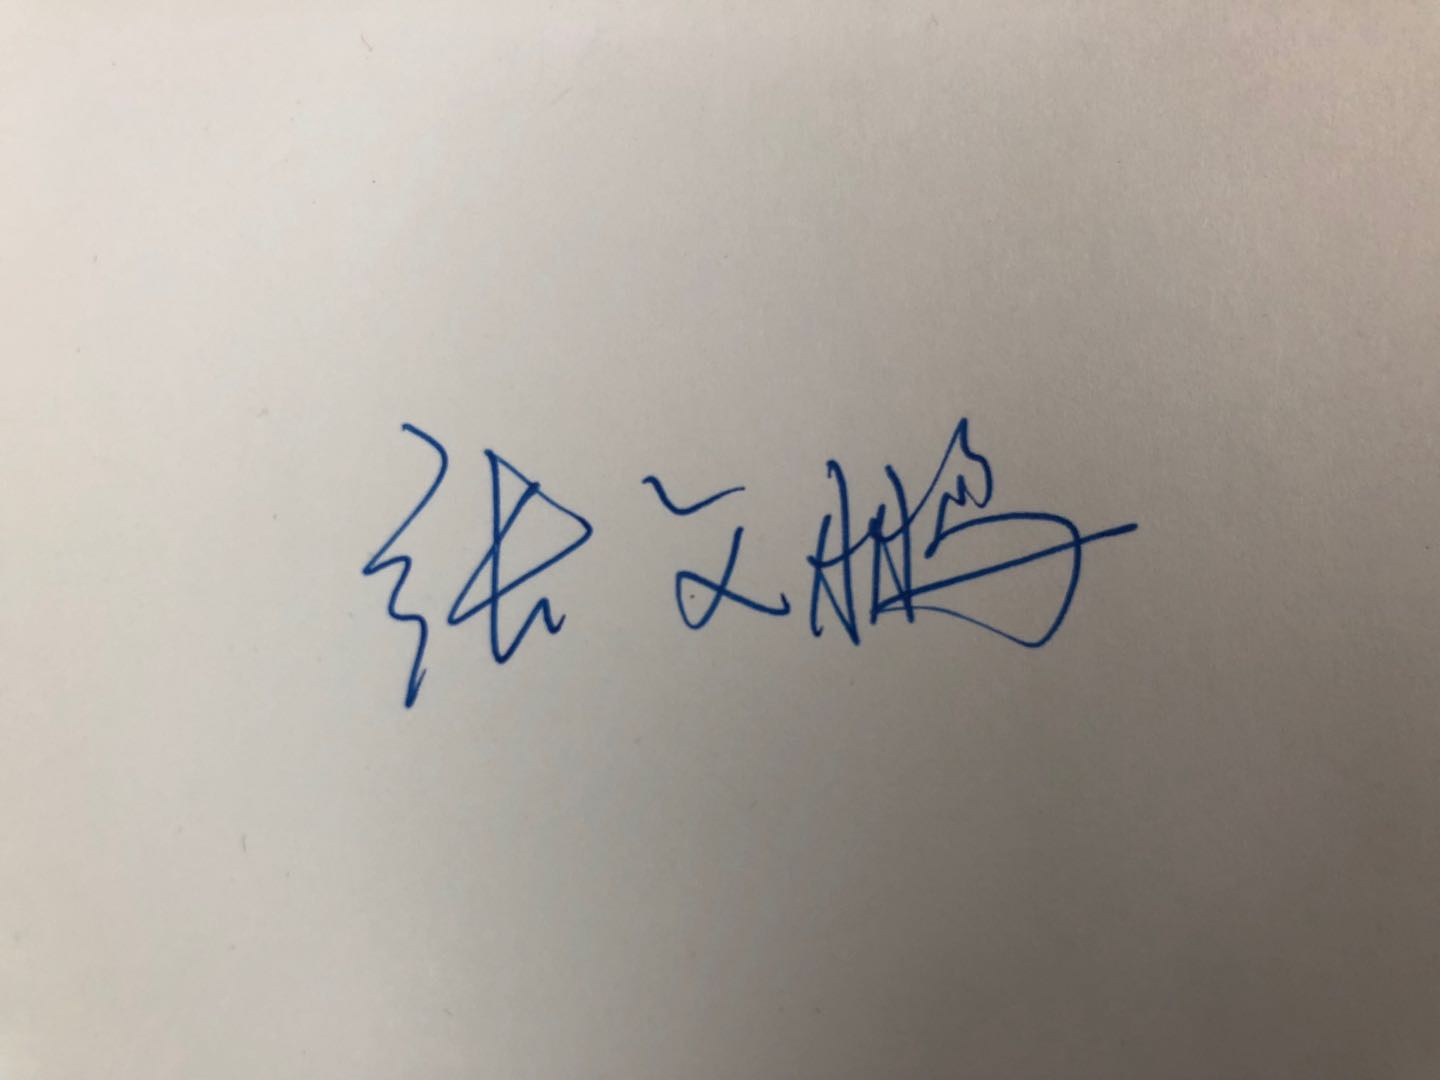 张文鹏